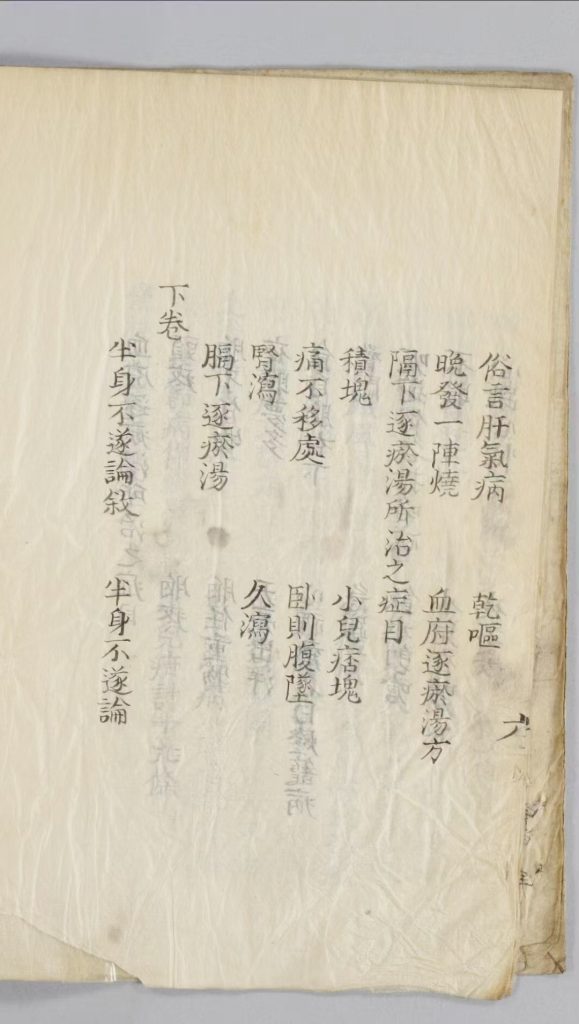 俗言肝氣病 乾嘔
晚發一陣燒 血府逐瘀湯方
隔下逐瘀湯所治之症目
積塊 小兒痞塊
痛不移處 卧則腹墜
腎瀉 久瀉
膈下逐瘀湯
下卷
半身不遂論敘 半身不遂論